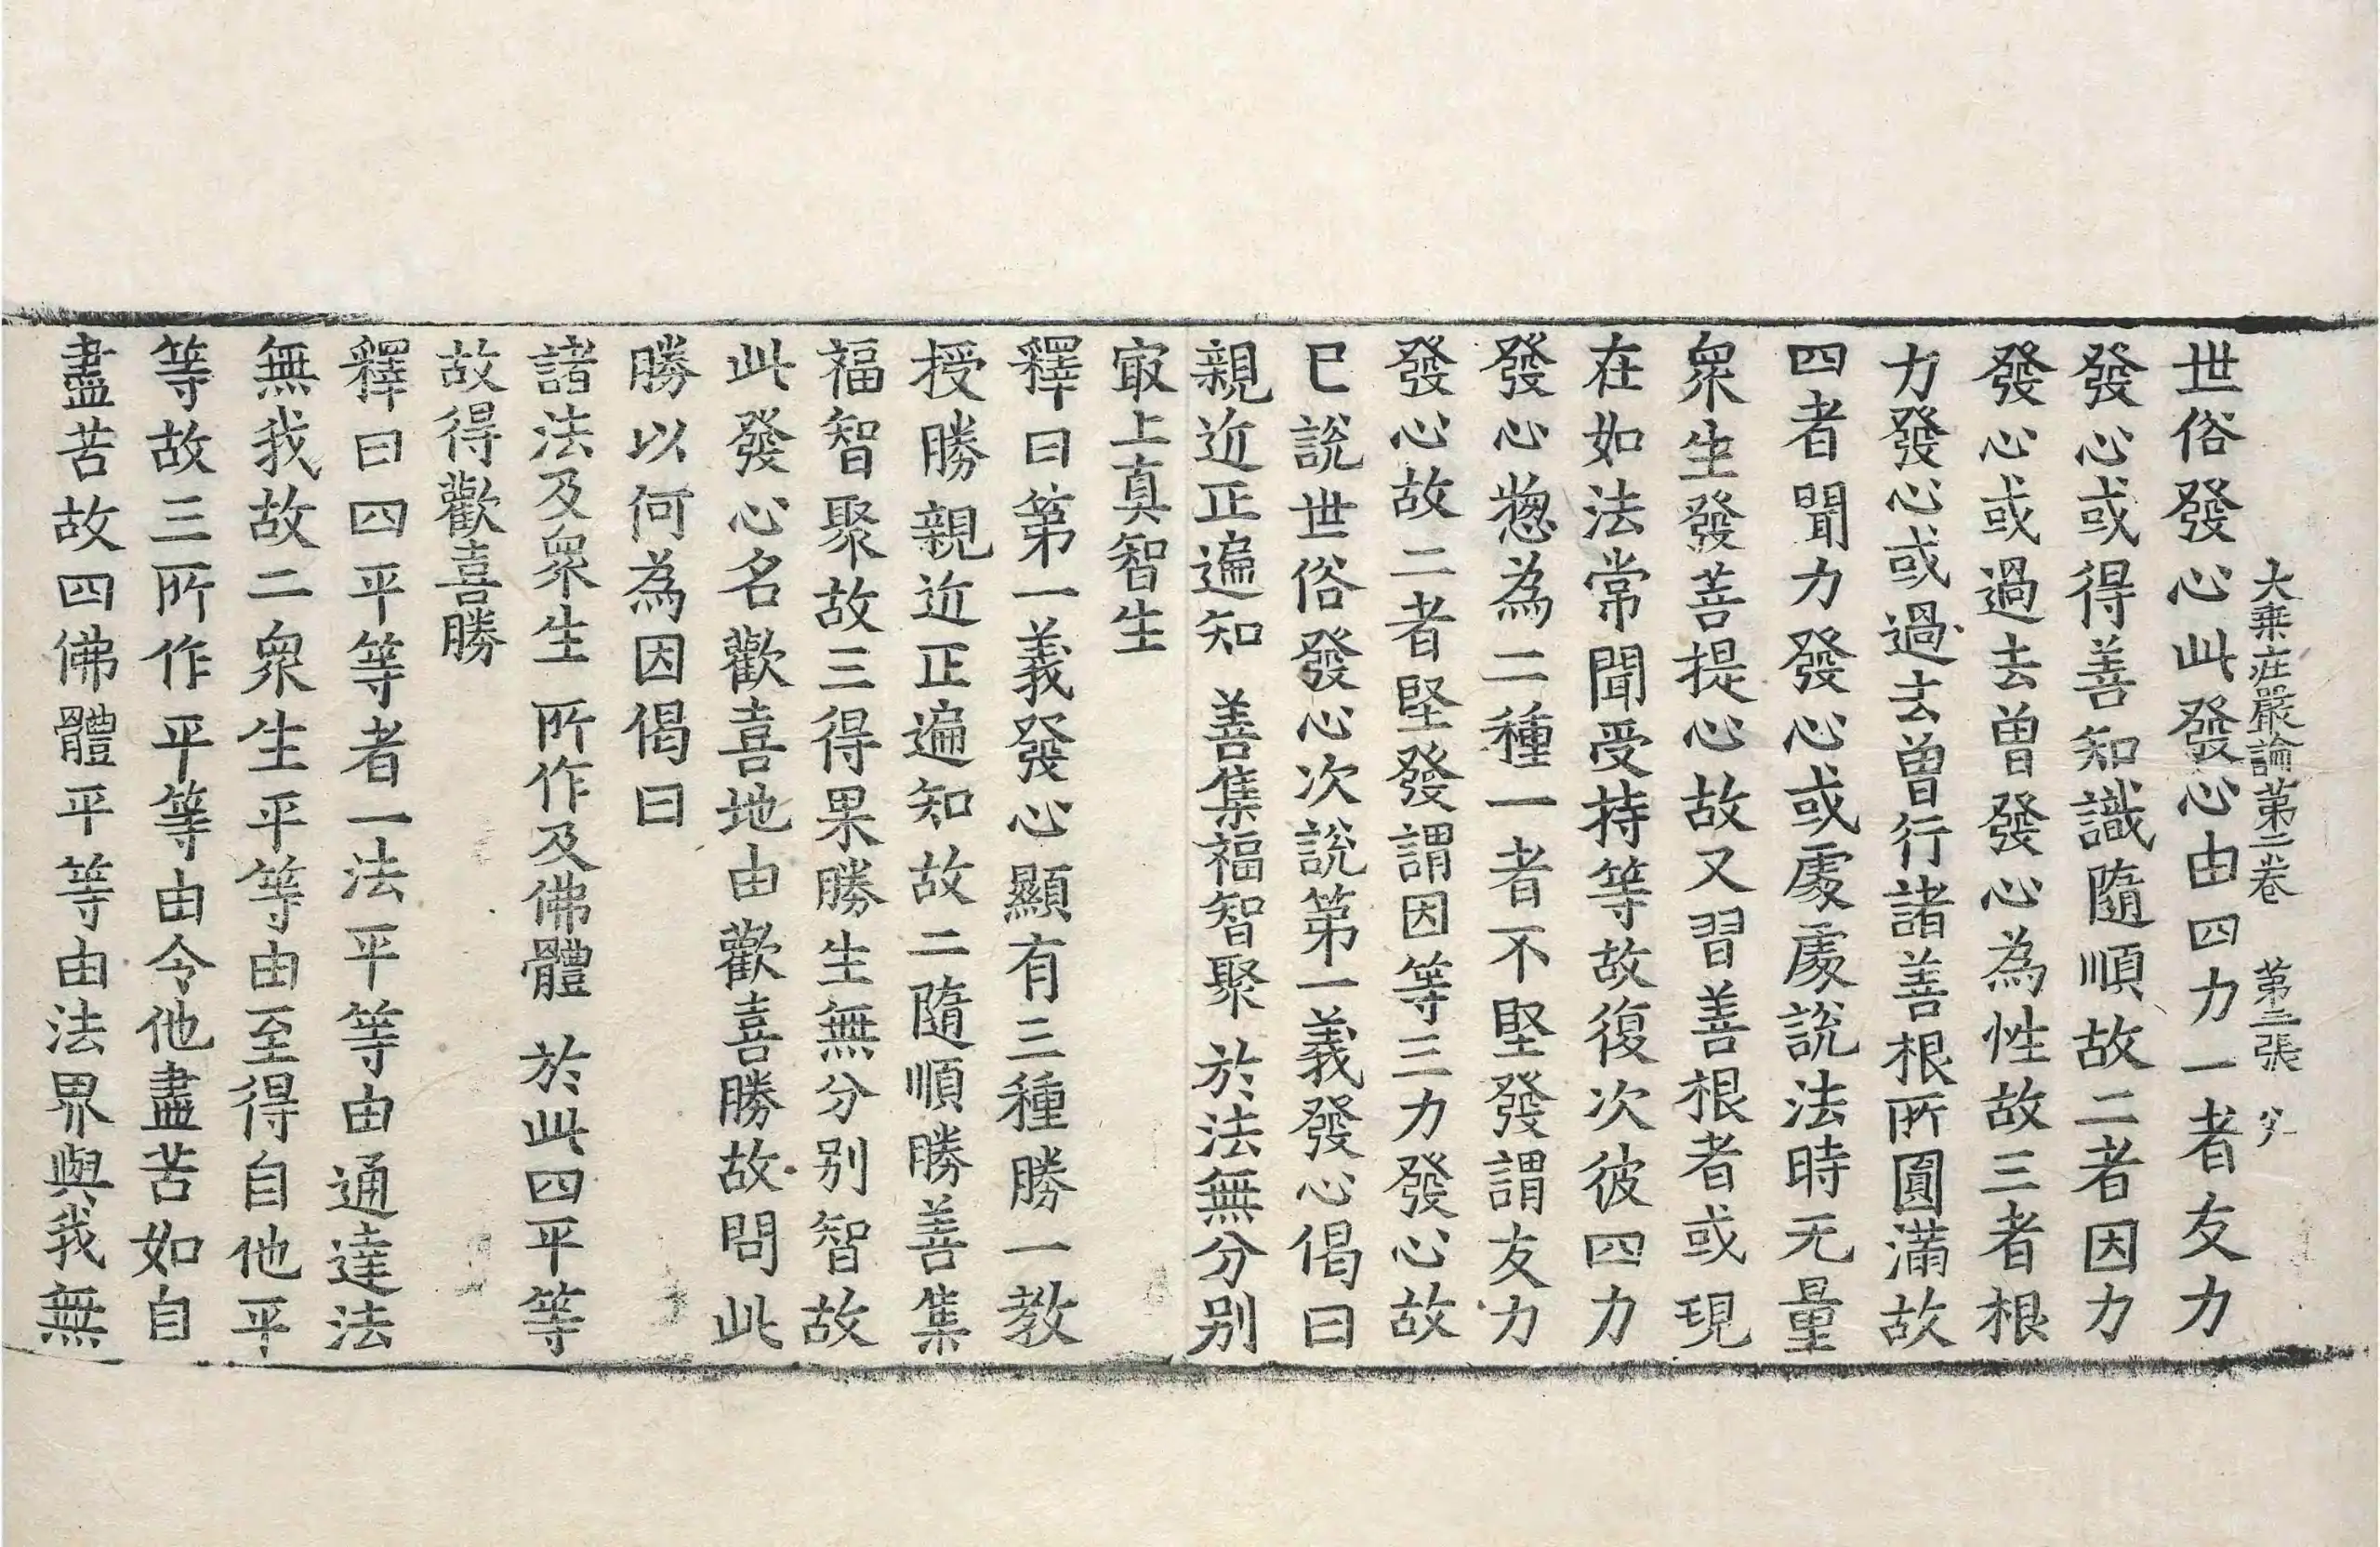 大乗庄嚴論第二卷　第三張
世俗發心此發心由四力一者友力
發心或得善知識隨順故二者因力
發心或過去曾發心為性故三者根
力發心或過去曾行諸善根所圓滿故
四者聞力發心或處處說法時无量
衆生發菩提心故又習善根者或現
在如法常聞受持等故復次彼四力
發心揔為二種一者不堅發謂友力
發心故二者堅發謂因等三力發心故
已說世俗發心次說第一義發心偈曰
親近正遍知　善集福智聚　於法無分别
㝡上真智生
釋曰第一義發心顯有三種勝一教
授勝親近正遍知故二隨順勝善集
福智聚故三得果勝生無分别智故
此發心名歡喜地由歡喜勝故問此
勝以何為因偈曰
諸法及衆生　所作及佛體　於此四平等
故得歡喜勝
釋曰四平等者一法平等由通達法
無我故二衆生平等由至得自他平
等故三所作平等由令他盡苦如自
盡苦故四佛體平等由法界與我無